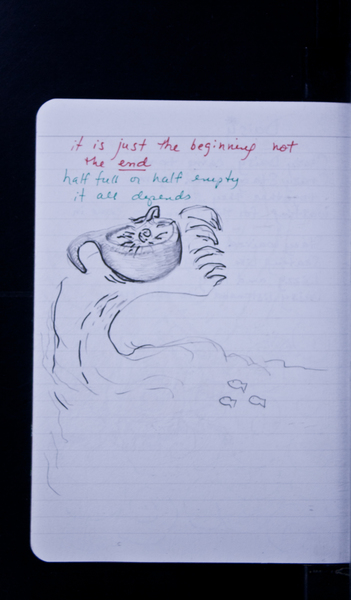 it is just the beginning not
the end
half full or half empty
it all depends